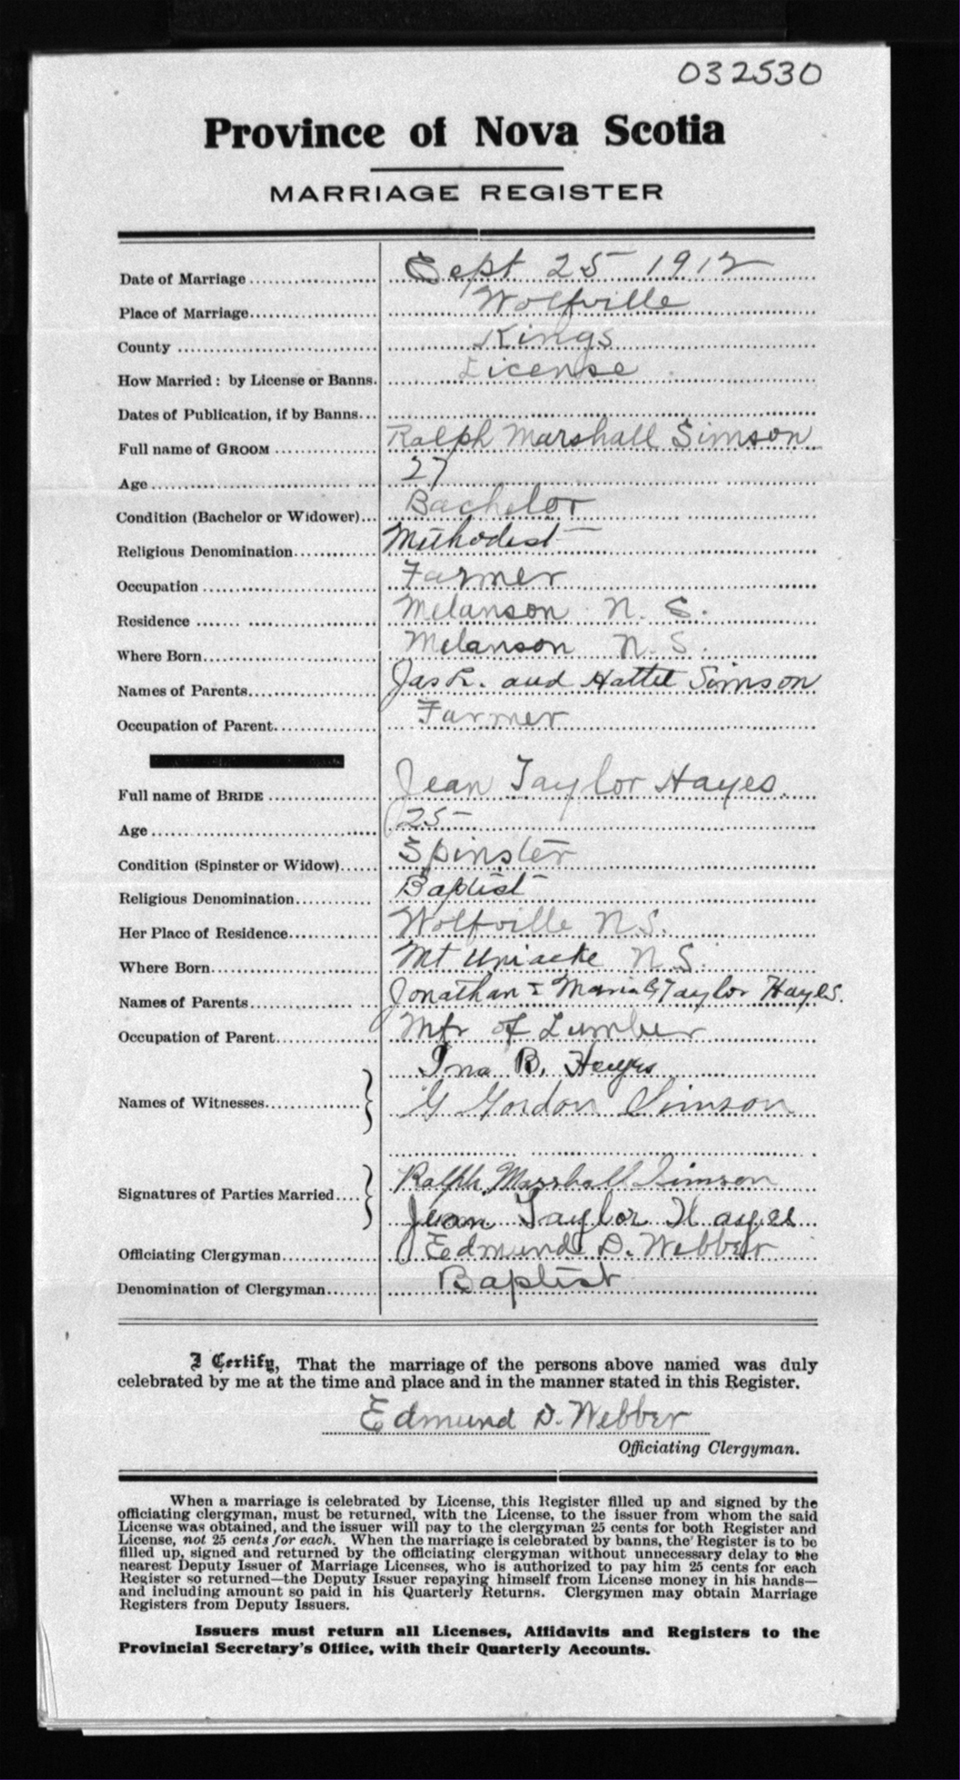 032530
Province of Nova Scotia
MARRIAGE REGISTER
Date of Marriage Sept 25 1912
Place of Marriage Wolfville
County Kings
How Married: by License or Banns. License
Dates of Publication, if by Banns
Full name of GROOM Ralph Marshall Simson
Age 27
Condition (Bachelor or Widower) Bachelor
Religious Denomination Methodist
Occupation Farmer
Residence Melanson N. S.
Where Born Melanson N. S.
Names of Parents Jas R. and Hattie Simson
Occupation of Parent Farmer
Full name of BRIDE Jean Taylor Hayes.
Age 25
Condition (Spinster or Widow) Spinster
Religious Denomination Baptist
Her Place of Residence Wolfville N.S.
Where Born Mt Uniacke N.S.
Names of Parents Jonathan & Maria Taylor Hayes.
Occupation of Parent Mfr of Lumber
Ina B. Hayes
Names of Witnesses G Gordon Simson
Signatures of Parties Married Ralph Marshall Simson
Jean Taylor Hayes
Officiating Clergyman Edmund D. Webber
Denomination of Clergyman Baptist
I Certify, That the marriage of the persons above named was duly
celebrated by me at the time and place and in the manner stated in this Register.
Edmund D. Webber
Officiating Clergyman.
When a marriage is celebrated by License, this Register filled up and signed by the
officiating clergyman, must be returned, with the License, to the issuer from whom the said
License was obtained, and the issuer will pay to the clergyman 25 cents for both Register and
License, not 25 cents for each. When the marriage is celebrated by banns, the Register is to be
filled up, signed and returned by the officiating clergyman without unnecessary delay to the
nearest Deputy Issuer of Marriage Licenses, who is authorized to pay him 25 cents for each
Register so returned—the Deputy Issuer repaying himself from License money in his hands—
and including amount so paid in his Quarterly Returns. Clergymen may obtain Marriage
Registers from Deputy Issuers.
Issuers must return all Licenses, Affidavits and Registers to the
Provincial Secretary's Office, with their Quarterly Accounts.